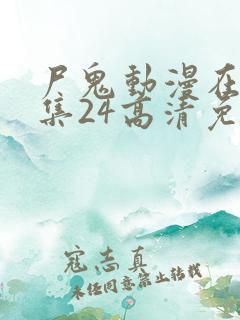 尸鬼動漫在
集24高清免
寇志真
未经同意禁止转载